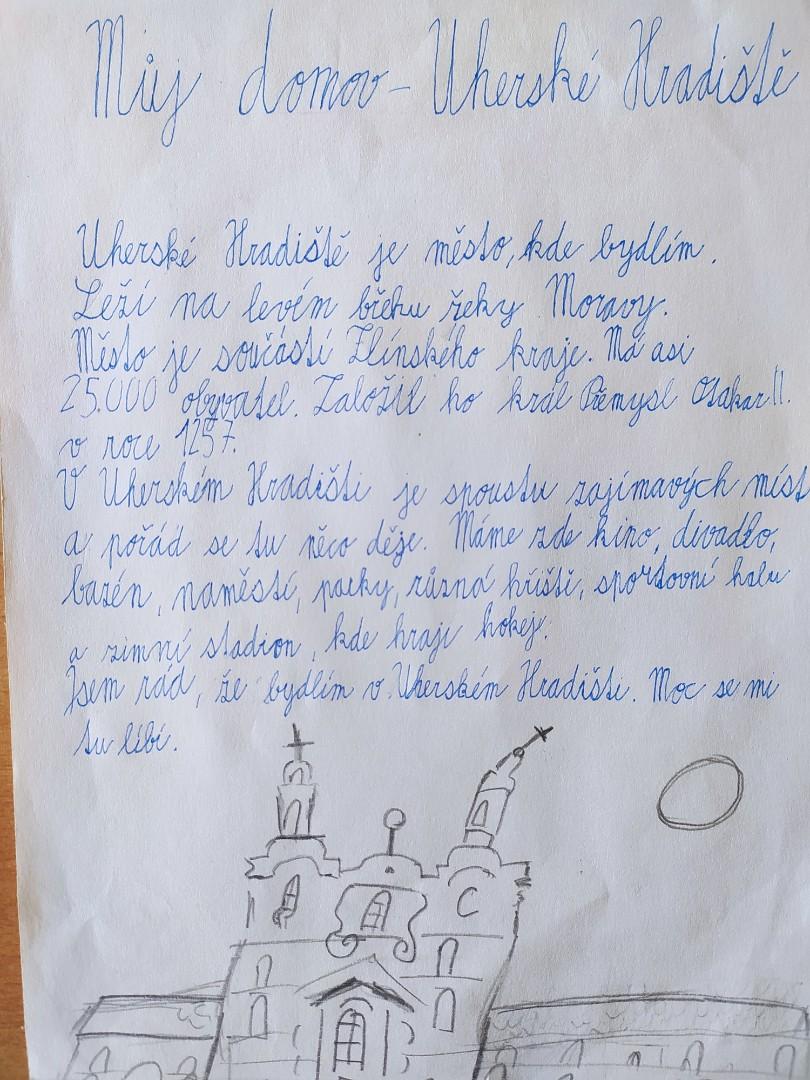 Můj domov - Uherské Hradiště
Uherské Hradiště je město, kde bydlím.
Leží na levém břehu řeky Moravy.
Město je součástí Zlínského kraje. Má asi
25.000 obyvatel. Založil ho král Přemysl Otakar II.
v roce 1257.
V Uherském Hradišti je spoustu zajímavých míst
a pořád se tu něco děje. Máme zde kino, divadlo,
bazén, naměstí, parky, různá hřiští, sportovní halu
a zimní stadion, kde hraji hokej.
Jsem rád, že bydlím v Uherském Hradišti. Moc se mi
tu líbí.